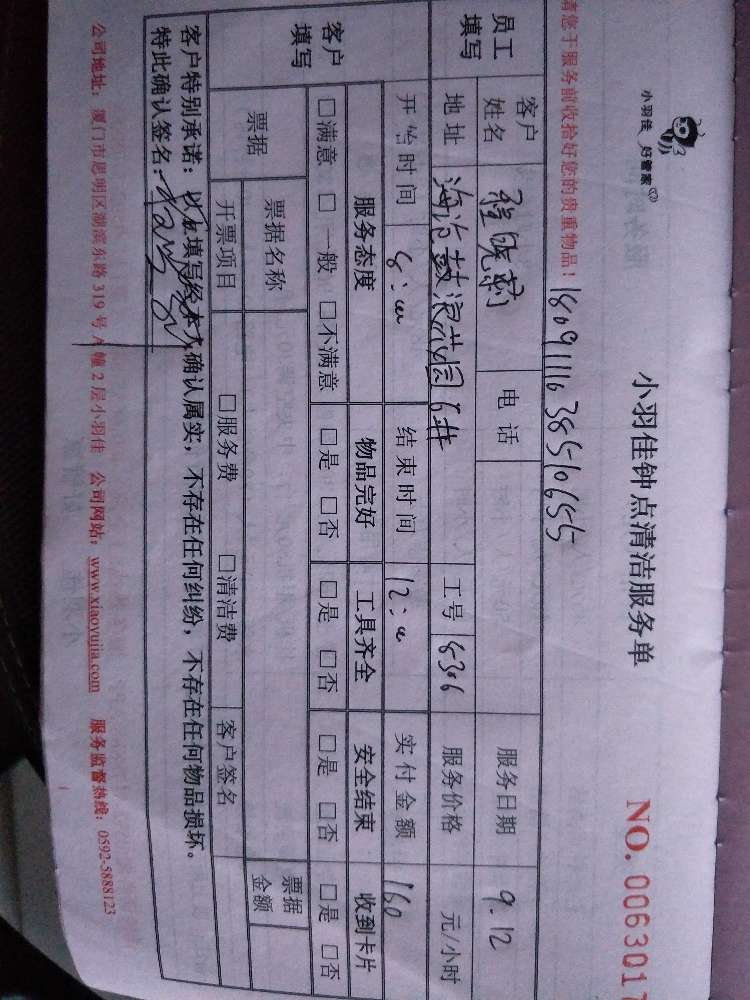 小羽佳 好管家
小羽佳钟点清洁服务单
NO. 0063017
请您于服务前收拾好您的贵重物品!
1809111638510655
员工填写
客户姓名 程晓莉 电话 服务日期 9.12
地址 海沧 浪花园6# 工号 服务价格 元/小时
开始时间 8: 结束时间 12: 实付金额 160
客户填写
服务态度 物品完好 工具齐全 安全结束 收到卡片
□满意 □一般 □不满意 □是 □否 □是 □否 □是 □否 □是 □否
票据 票据名称 票据金额
开票项目 □服务费 □清洁费 客户签名
客户特别承诺:以上填写经本人确认属实,不存在任何纠纷,不存在任何物品损坏。
特此确认签名:
公司地址:厦门市思明区湖滨东路319号A幢2层小羽佳 公司网站:www.xiaoyujia.com 服务监督热线:0592-5888123